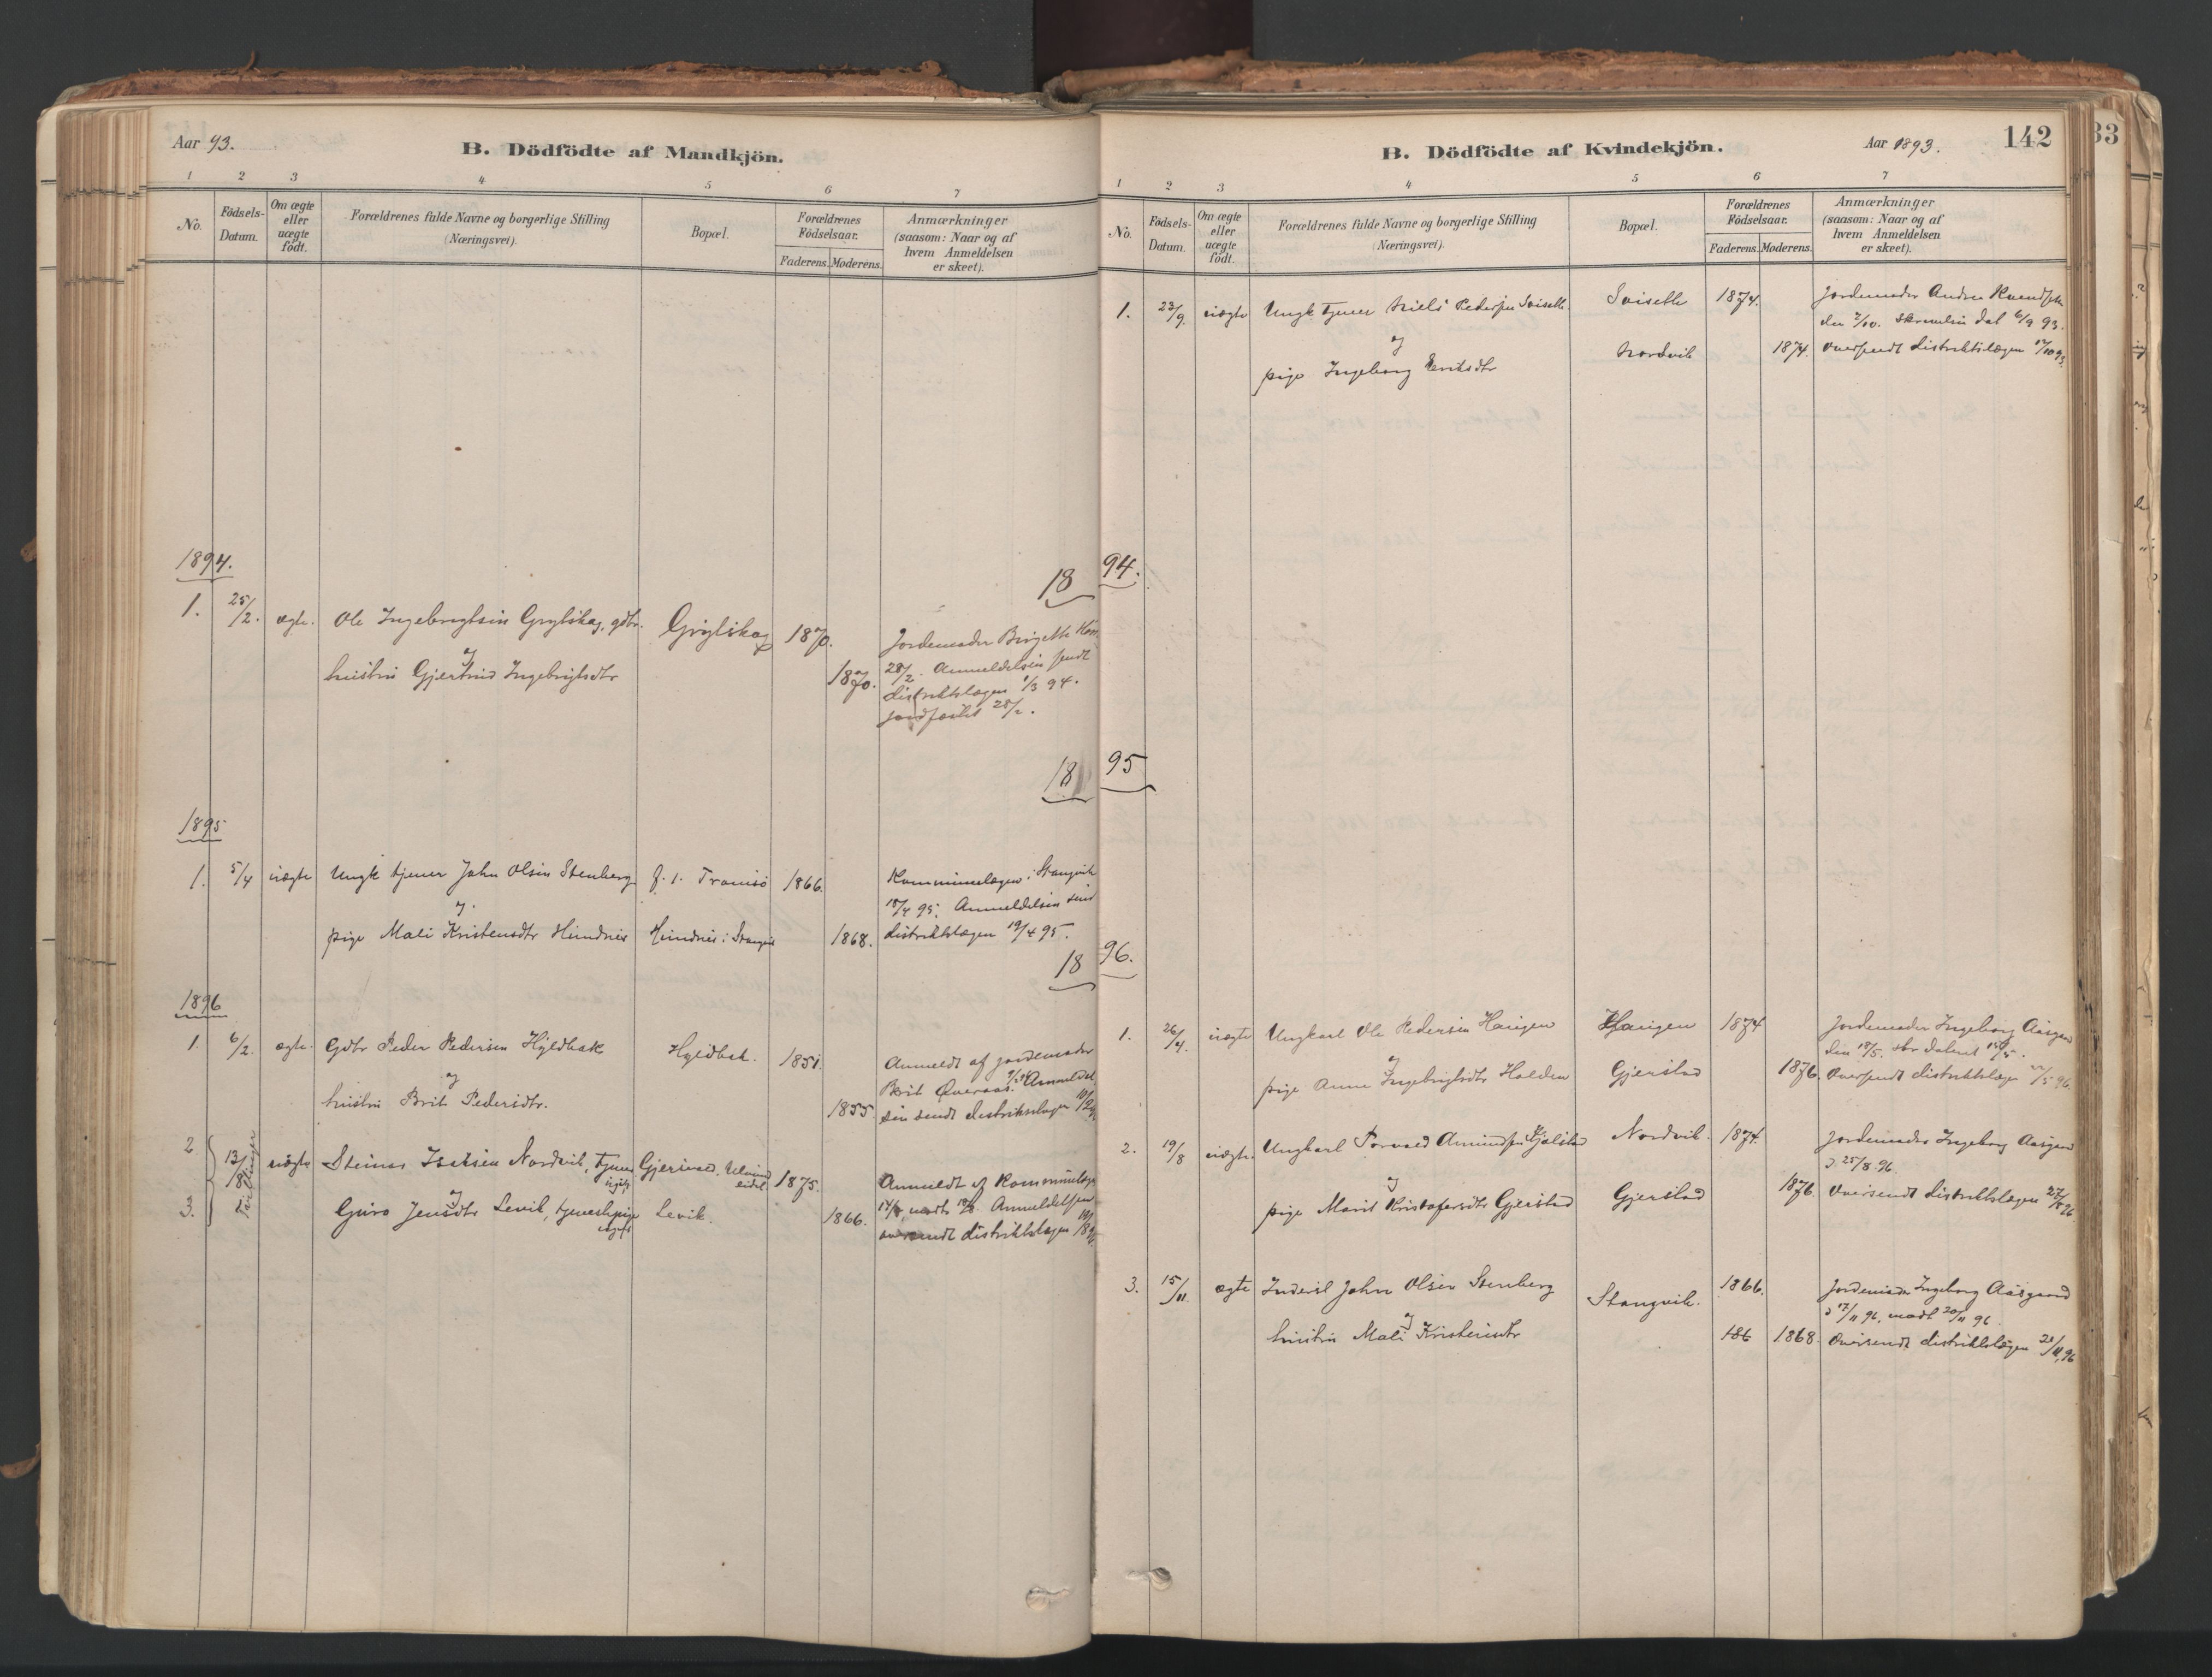 Aar 93.
B. Dödfödte af Mandkjön.
1 2 3 4 5 6 7
No.
Födsels-Datum.
Om ægte eller uægte födt.
Forældrenes fulde Navne og borgerlige Stilling (Næringsvei).
Bopæl.
Forældrenes Födselsaar.
Faderens. Moderens.
Anmærkninger (saasom: Naar og af hvem Anmeldelsen er skeet).
1894.
1. 25/2. ægte. Ole Ingebrigtsen Grytskog, gdbr. Grytskog 1870. Jordemoder Birgitte
og
hustru Gjertrud Ingebrigtsdtr 1870. 28/2. Anmeldelsen sendt
distriktslægen 1/3 94.
jordfæstet 28/2.
1895
1. 5/4 uægte Ungk tjener John Olsen Stenberg f. t. Tromsö 1866. Kommunelægen i Stangvik
og
18/4 95. Anmeldelsen send
pige Mali Kristensdtr Hundnes Hundnes i Stangvik 1868. distriktslægen 19/4 95.
1896
1. 6/2. ægte. Gdbr Peder Pedersen Hyldbak Hyldbak. 1851. Anmeldt af jordemoder
og
Brit Anmeldel
hustru Brit Pedersdtr. 1855. sen sendt distriktslægen
2 13/8 Tvillinger uægte Steinar Isaksen Nordvik, tjener ugift Gjersvad. 1875. Anmeldt af Kommunelæge
og
3. Guro Jensdtr Levik, tjenestepige ugift Levik. 1866. 14/8, mundts Anmeldelsen
oversendt distriktslægen
B. Dödfödte af Kvindekjön.
Aar 1893.
142
1 2 3 4 5 6 7
No.
Födsels-Datum.
Om ægte eller uægte födt.
Forældrenes fulde Navne og borgerlige Stilling (Næringsvei).
Bopæl.
Forældrenes Födselsaar.
Faderens. Moderens.
Anmærkninger (saasom: Naar og af hvem Anmeldelsen er skeet).
1. 23/9. uægte Ungk tjener Niels Pedersen Sviseth. Sviseth 1874. Jordemoder Andrea
den 2/10.
og
Nordvik 1874. Oversendt distriktslægen
pige Ingeborg Eriksdtr
1894.
1895
1896.
1. 26/4. uægte Ungkarl Ole Pedersen Haugen Haugen 1874 Jordemoder Ingeborg Aasgaard
og
den 18/5.
pige Anne Ingebrigtsdtr Halden Gjerstad 1876. Oversendt distriktslægen 22/5 96.
2. 19/8 uægte. Ungkarl Torvald Amundsen Nordvik. 1874. Jordemoder Ingeborg Aasgaard
og
d. 25/8 96.
pige Marit Kristofersdtr Gjerstad Gjerstad 1876. Oversendt distriktslægen 27/8 96
3. 15/11. ægte Inderst John Olsen Stenberg Stangvik. 1866. Jordemoder Ingeborg Aasgaard
og
d 17/11 96, modt 20/11 96.
hustru Mali Kristensdtr 186 1868. Oversendt distriktslægen 20/11 96
33